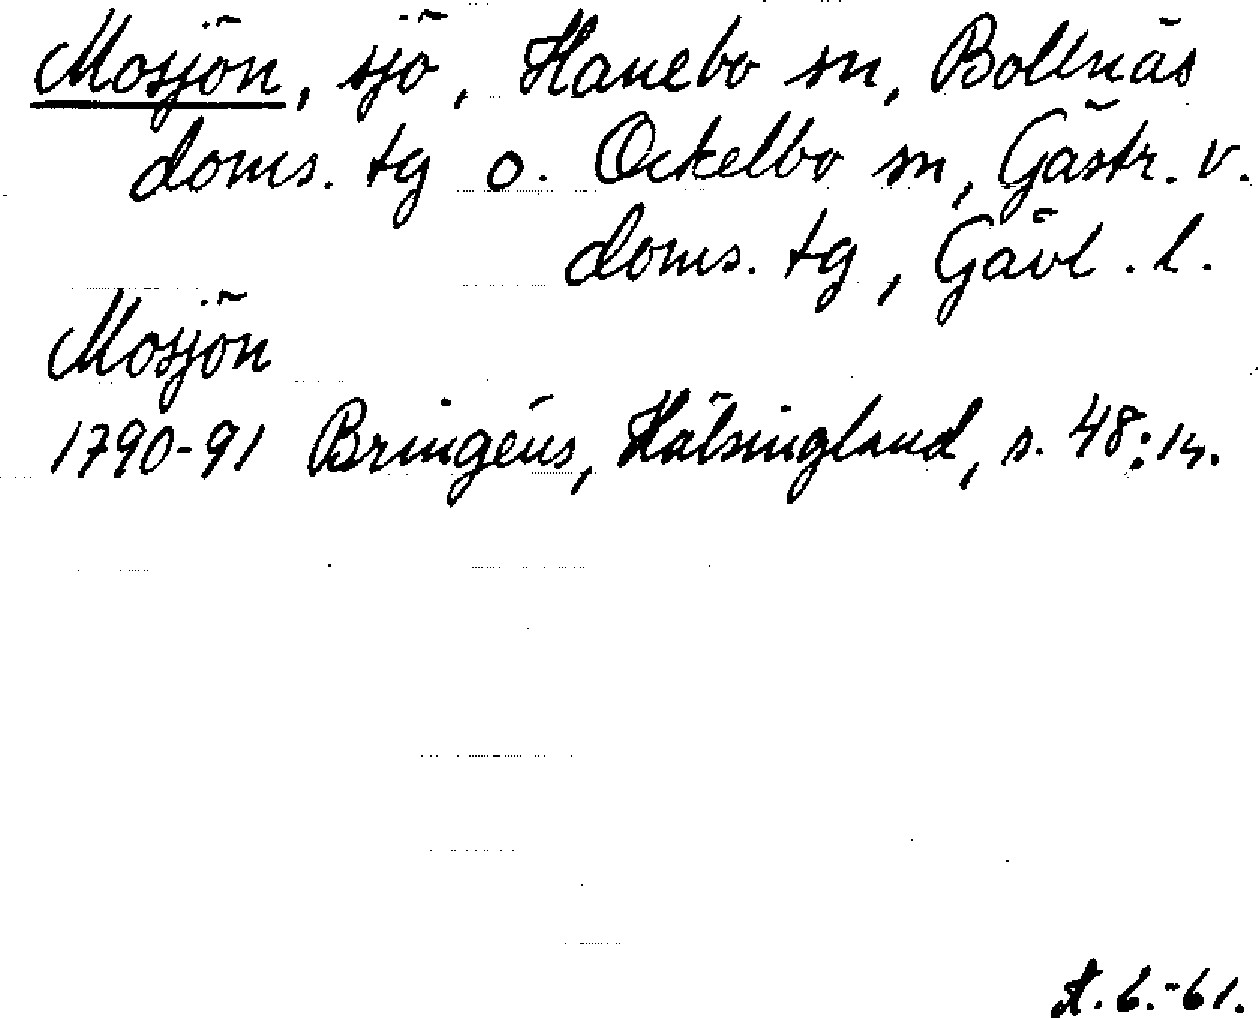 Mosjön, sjö, Hanebo sn, Bollnäs
doms. tg o. Ockelbo sn, Gästr. v.
doms. tg, Gävl. l.
Mosjön
1790-91 Bringéus, Hälsingland, s. 48;
6.-61.